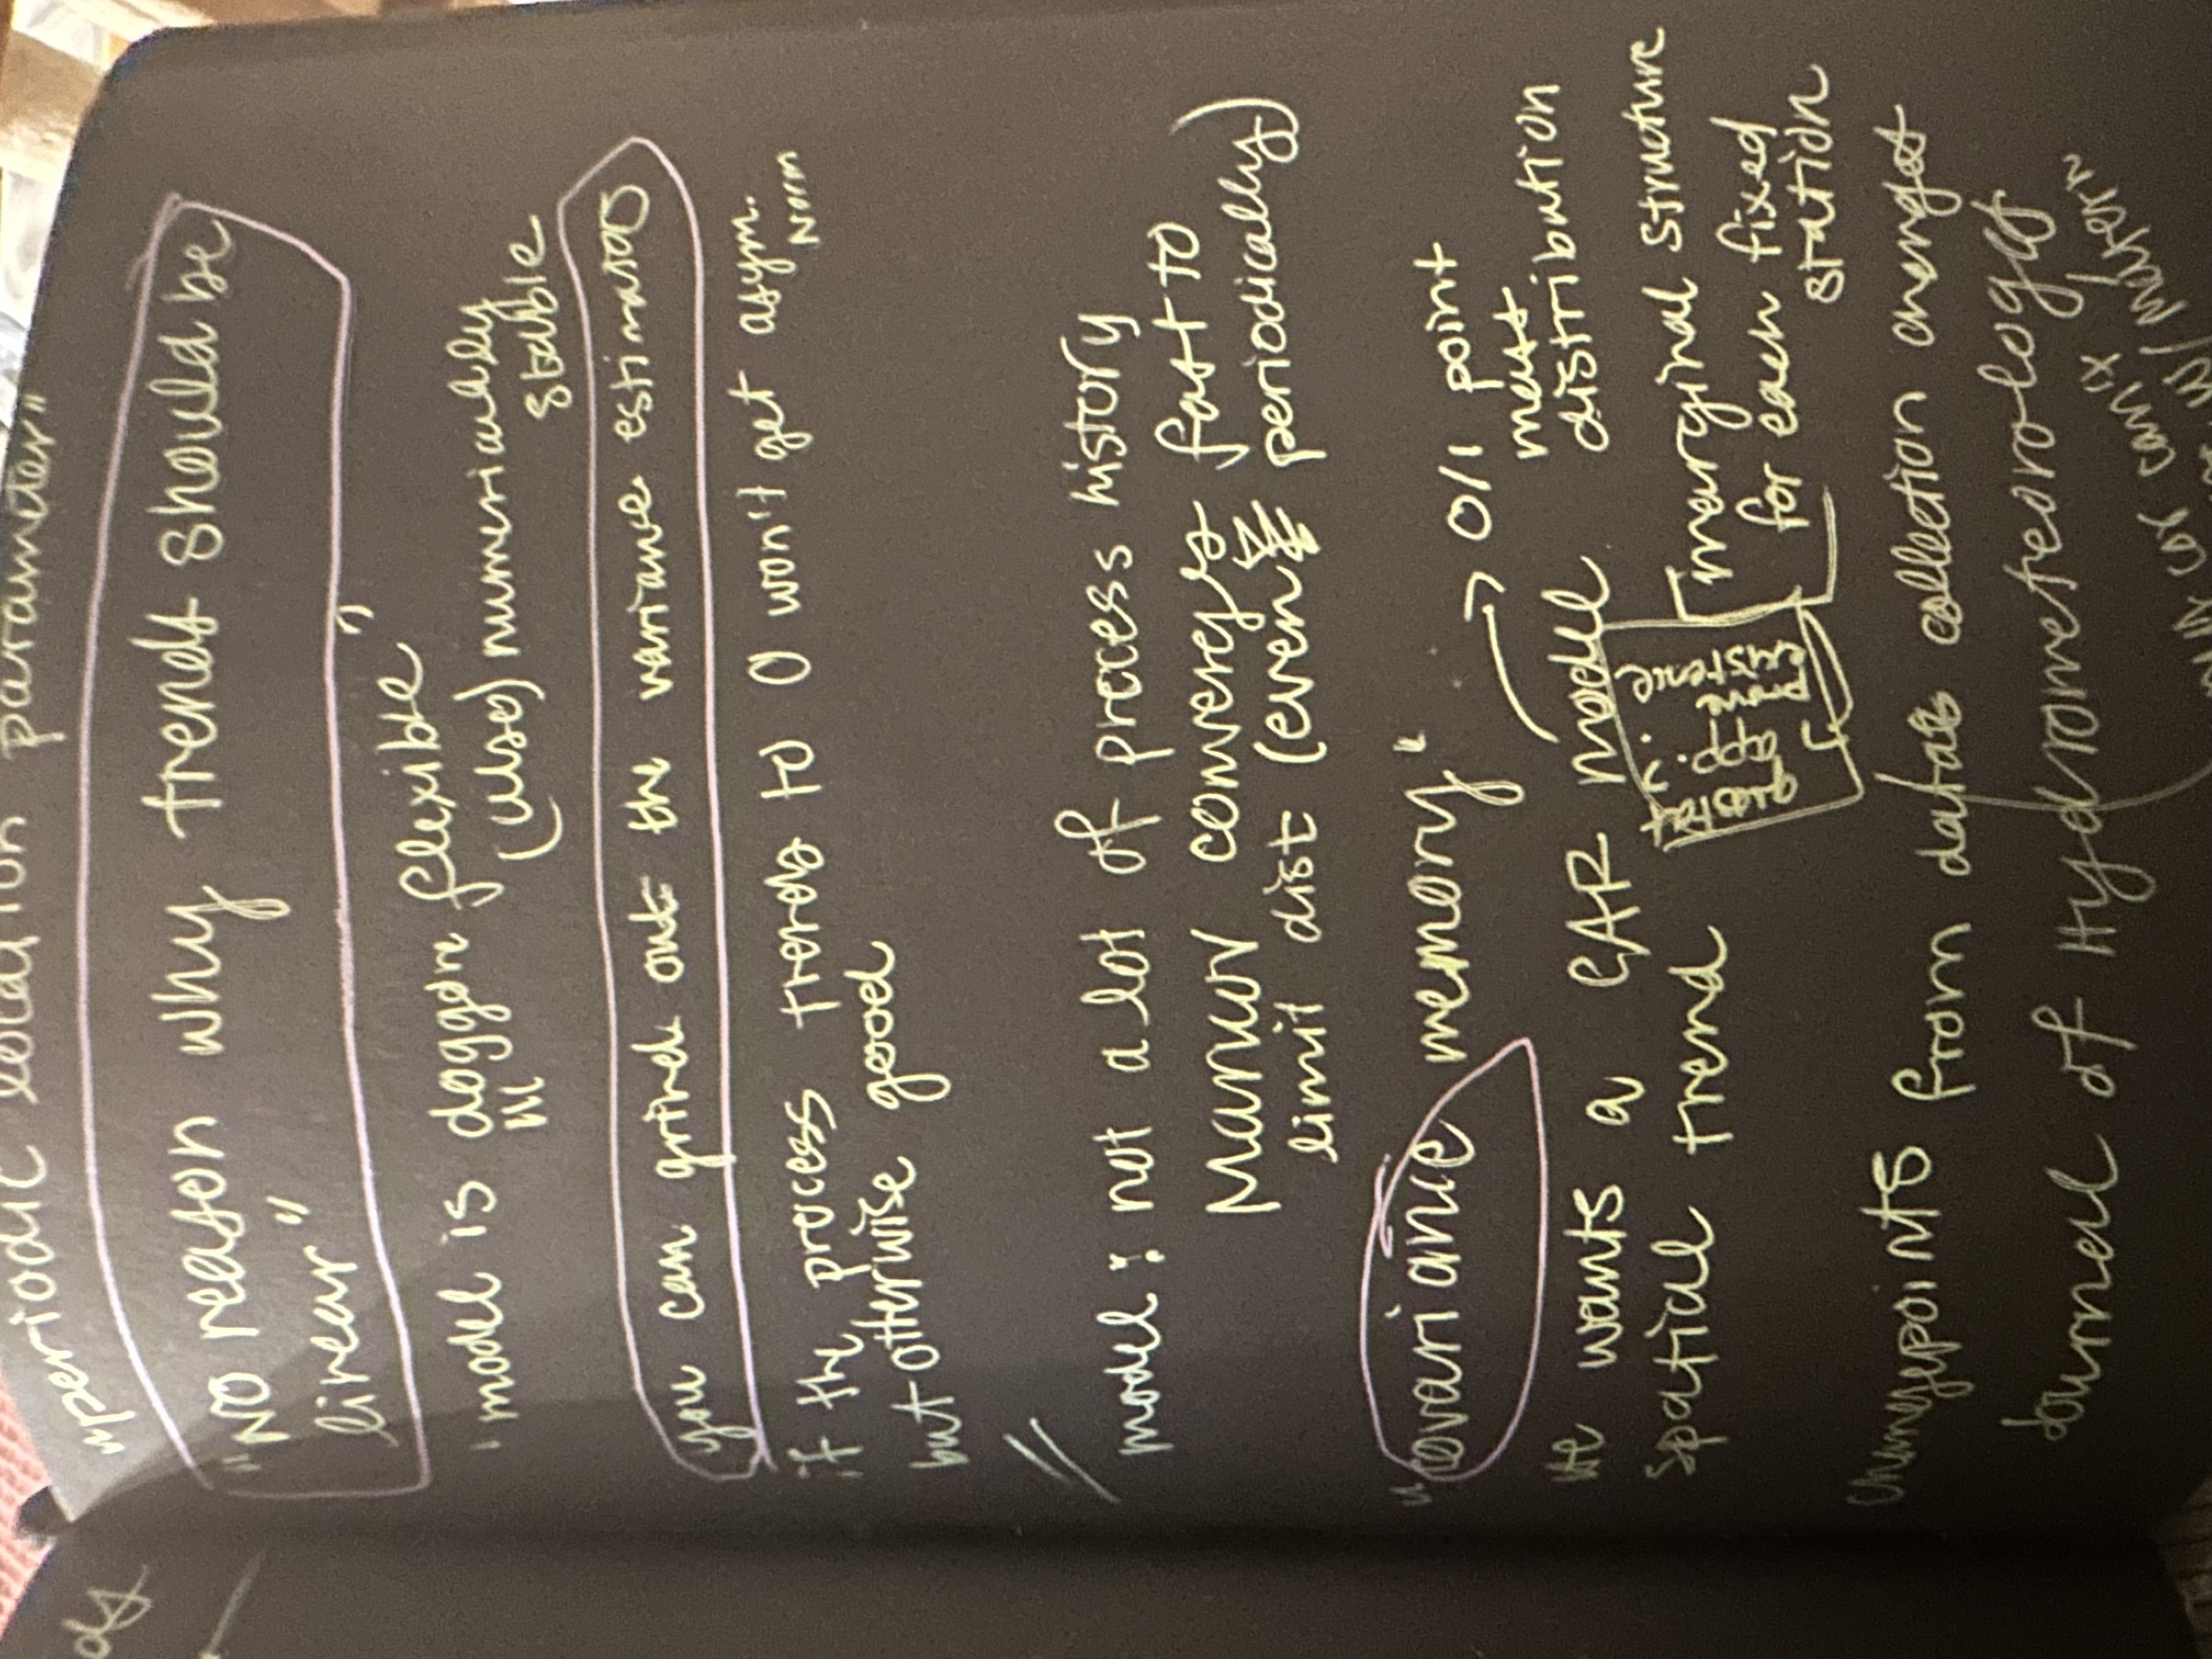 "periodic location parameter"
"No reason why trends should be
linear"
'model is doggon flexible'
(uses) numerically
stable
you can grind out the variance estimates
if the process trends to 0 won't get asym.
norm
but otherwise good
model: not a lot of process history
Markov converges fast to
limit dist (even periodically)
"covariance memory"
→ 0/1 point
mass
distribution
He wants a GAR model
spatial trend
marginal structure
for each fixed
station
changepoints from data collection changes
Journal of Hydrometeorology